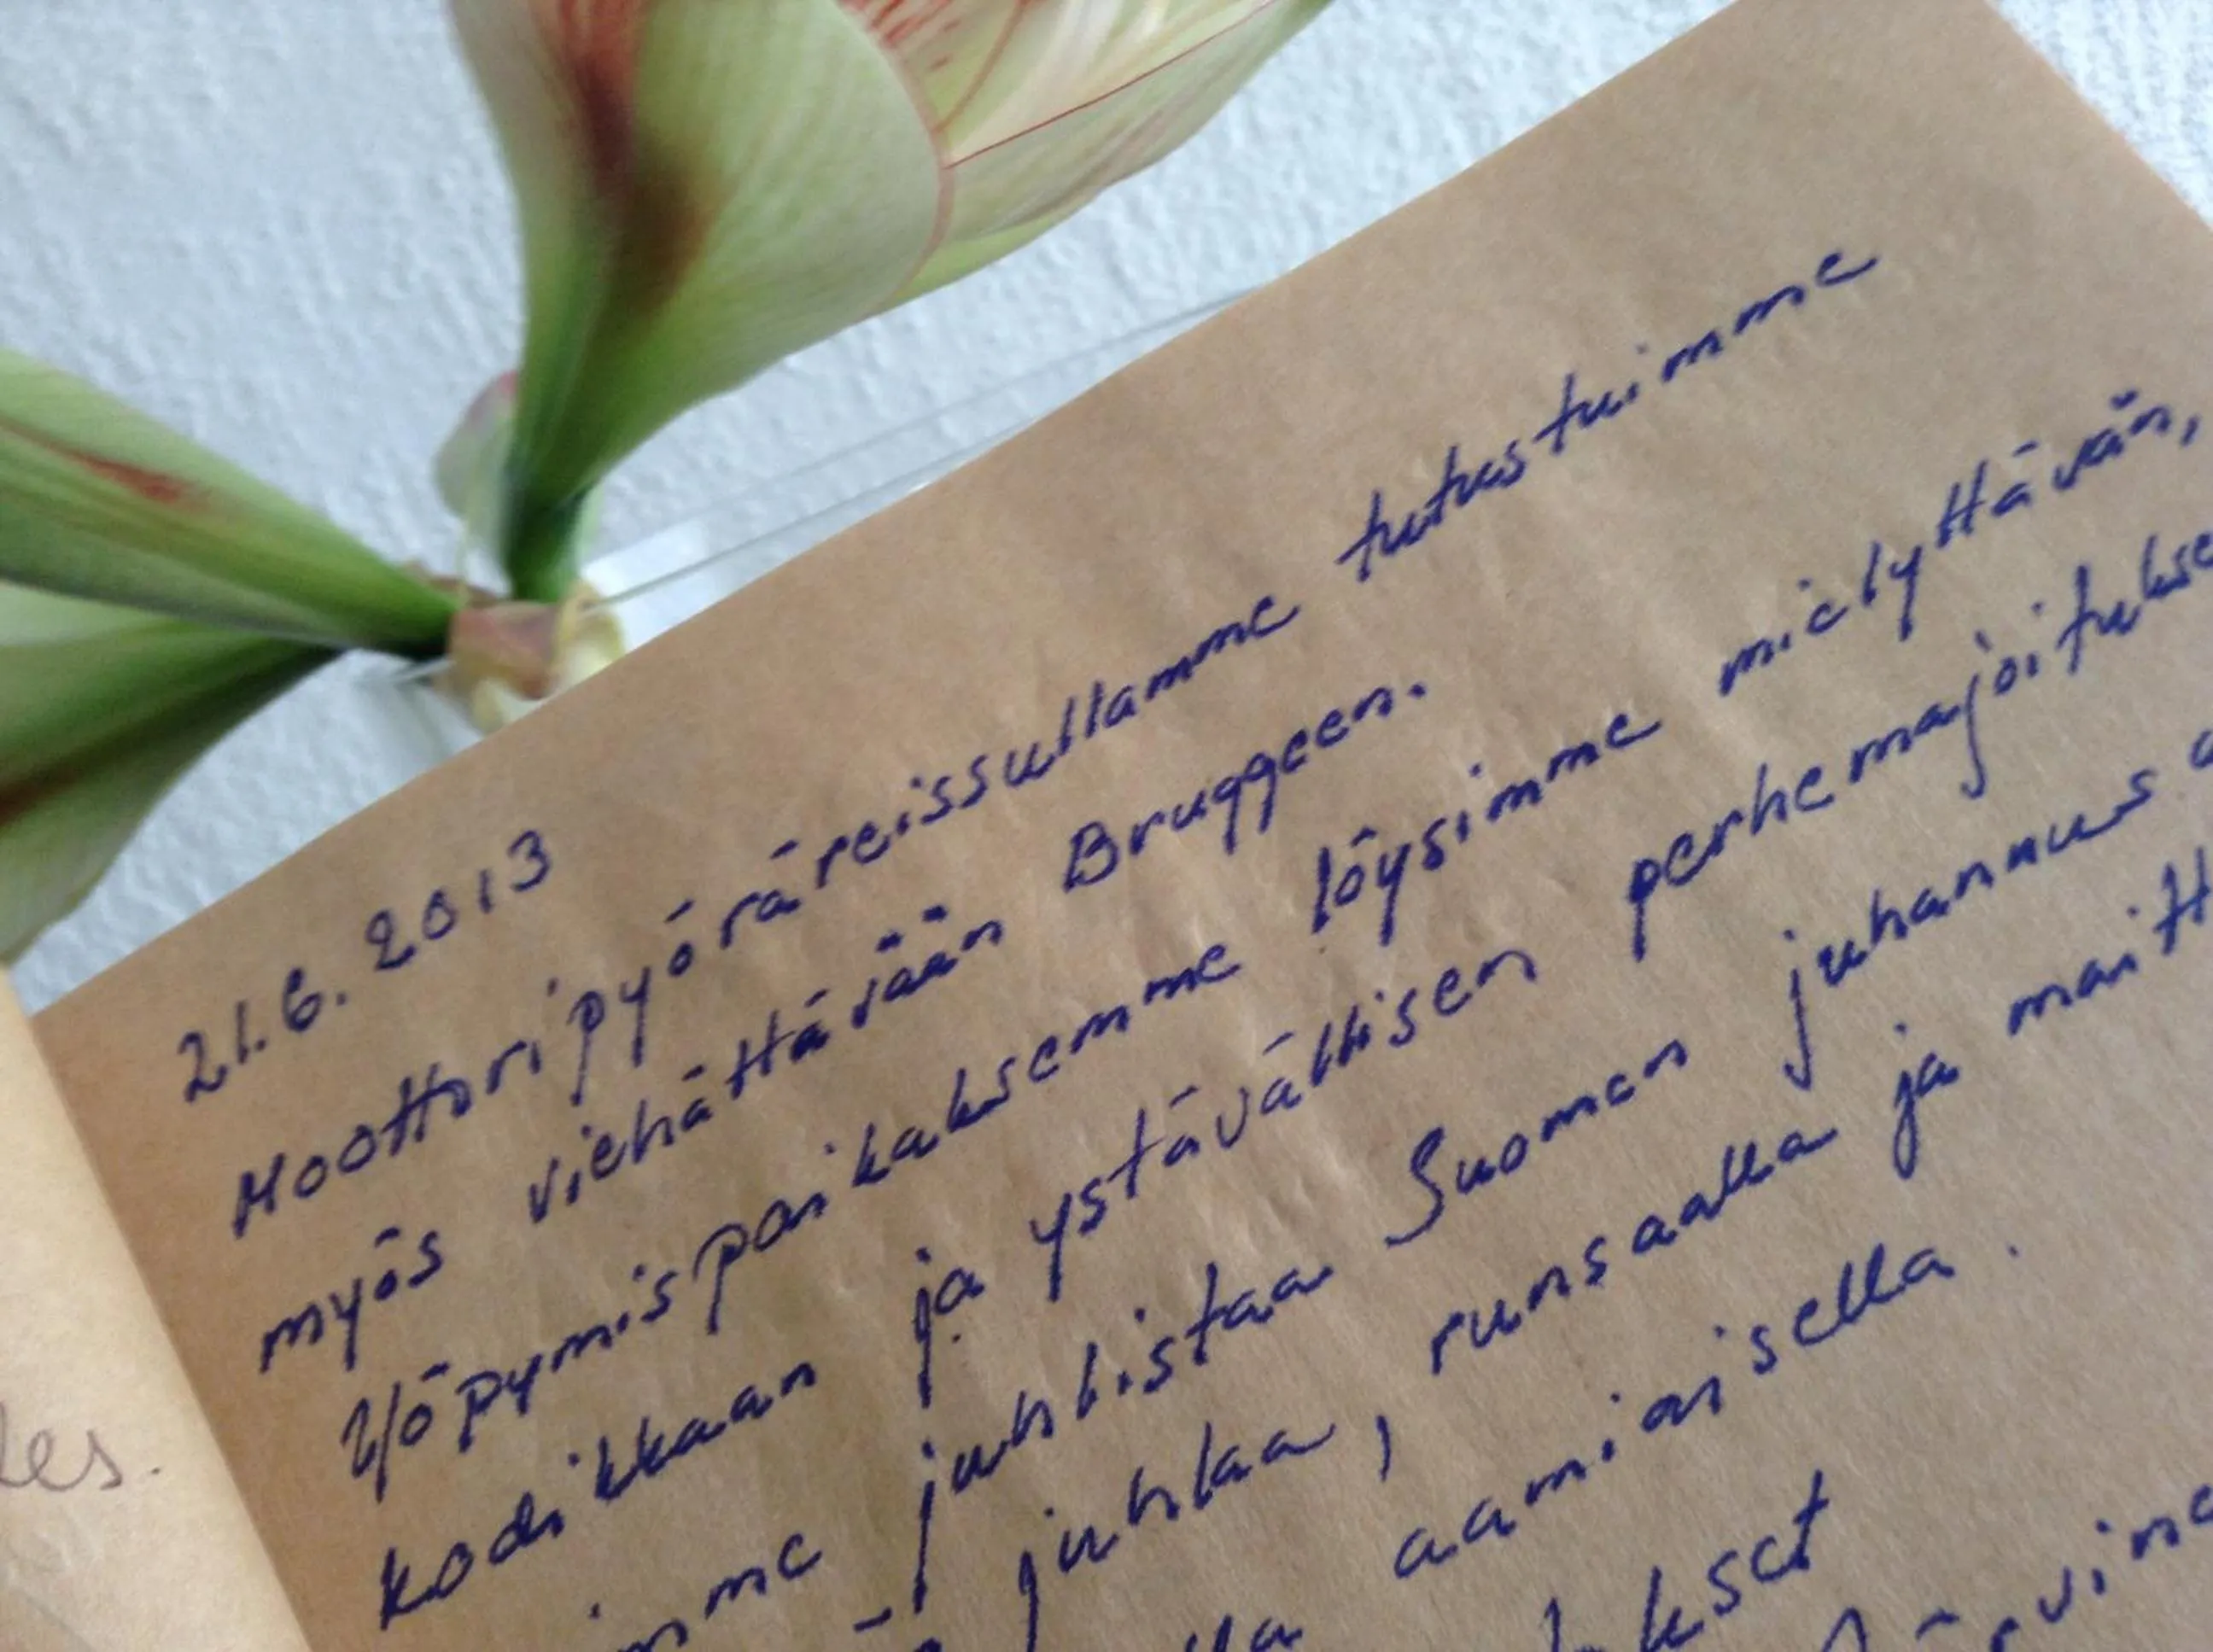 21.6.2013
Moottoripyöräreissullamme tutustuimme
myös viehättävään Bruggeen.
Yöpymispaikaksemme löysimme miellyttävän,
kodikkaan ja ystävällisen perhemajoitukse
imme juhlistaa Suomen juhannus a
juhlaa, runsaalla ja maitt
lla aamiaisella.
kset
les.